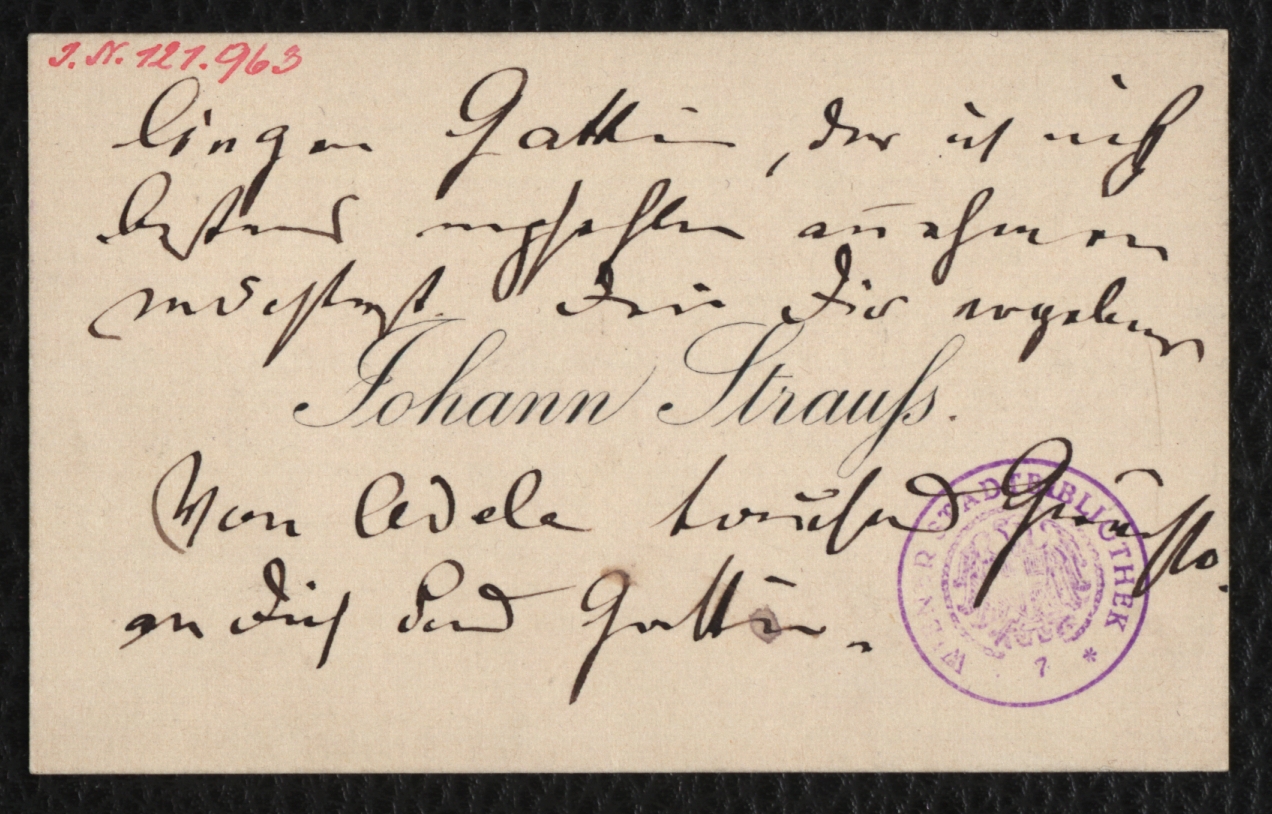 J.N. 121.963
Gattin, der ich mich
bestens empfehlen
möchtest. Dein Dir ergebener
Johann Strauss.
Von Adele tausend Grüsse
an Dich und Gattin.
WIENER STADTBIBLIOTHEK * 7